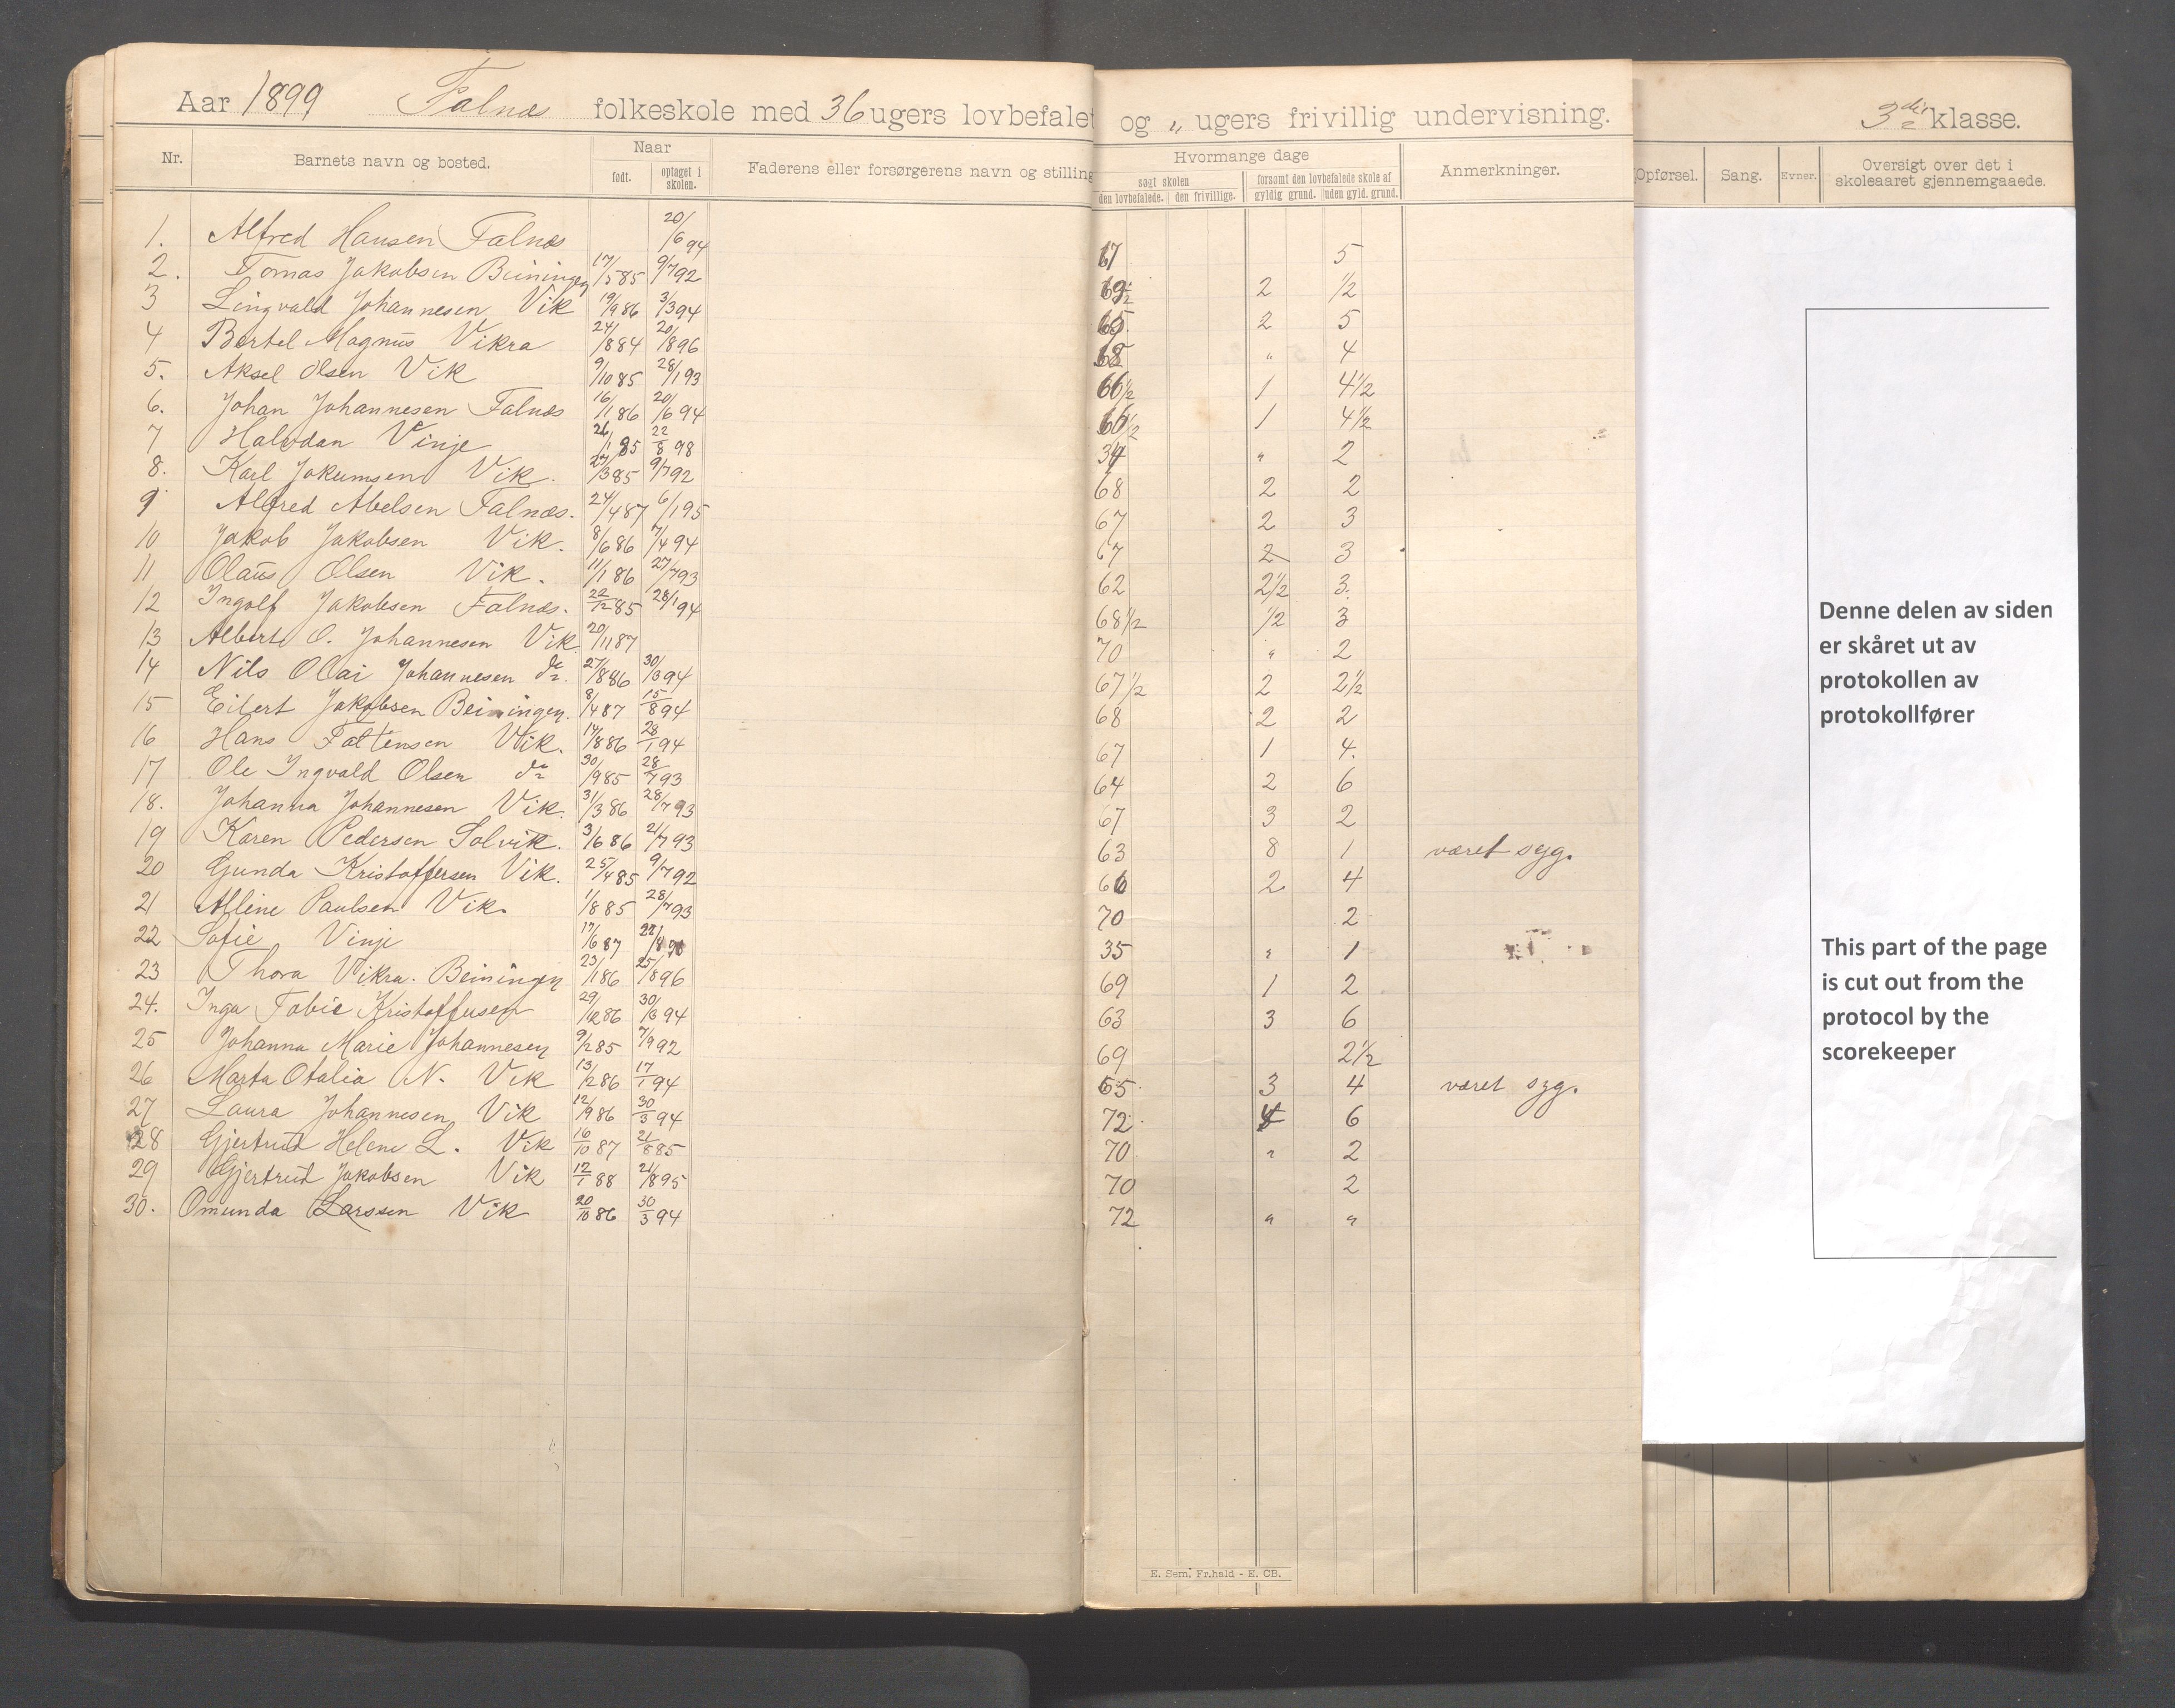 Aar 1899 Falnæs folkeskole med 36 ugers lovbefalet og „ ugers frivillig undervisning. 3die klasse.
Nr. Barnets navn og bosted. Naar født. optaget i skolen. Faderens eller forsørgerens navn og stilling Hvormange dage søgt skolen den lovbefalede. den frivillige. forsømt den lovbefalede skole af gyldig grund. uden gyld. grund. Anmerkninger. Opførsel. Sang. Evner. Oversigt over det i skoleaaret gjennemgaaede.
1. Alfred Hansen Falnæs 20/6 94 67 5
2. Tomas Jakobsen Beiningen 17/5 85 9/7 92 2 1/2
3 Lingvald Johannesen Vik 19/9 86 3/3 94 65 2 5
4 Bertel Magnus Vikra 24/8 84 20/8 96 68 „ 4
5. Aksel Olsen Vik 9/10 85 28/1 93 66 1/2 1 4 1/2
6. Johan Johannesen Falnæs 16/1 86 20/6 94 66 1/2 1 4 1/2
7 Halvdan Vinje 26/1 85 22/8 98 34 „ 2
8. Karl Jokumsen Vik. 27/3 85 9/7 92 68 2 2
9 Alfred Abelsen Falnæs. 24/4 87 6/1 95 67 2 3
10 Jakob Jakobsen Vik. 8/6 86 7/4 94 67 2 3
11 Olaus Olsen Vik. 11/1 86 27/7 93 62 2 1/2 3.
12 Ingolf Jakobsen Falnæs. 22/12 85 28/1 94 68 1/2 1/2 3
13 Albert O. Johannesen Vik 20/11 87 70 „ 2
14 Nils Olai Johannesen do. 27/8 86 30/3 94 67 1/2 2 2 1/2
15 Eilert Jakobsen Beiningen. 8/4 87 15/8 94 68 2 2
16 Hans Vik. 17/8 86 28/1 94 67 1 4.
17 Ole Ingvald Olsen do 30/9 85 28/7 93 64 2 6
18. Johanna Johannesen Vik. 31/3 86 28/7 93 67 3 2
19 Karen Pedersen Solvik. 3/6 86 21/7 93 63 8 1 været syg.
20 Gunda Kristoffersen Vik. 25/4 85 9/7 92 66 2 4
21 Alline Paulsen Vik. 1/8 85 28/7 93 70 2
22 Sofie Vinje 17/6 87 35 „ 1
23 Thora Vikra. Beiningen 23/1 86 25/8 96 69 1 2
24. Inga Tobie Kristoffersen 29/12 86 30/3 94 63 3 6
25 Johanna Marie Johannesen 9/2 85 7/9 92 69 2 1/2
26 Marta Otalia N. Vik 13/2 86 17/1 94 65 3 4 været syg.
27 Laura Johannesen Vik 12/9 86 30/3 94 72 6
28 Gjertrud Helene L. Vik 16/10 87 21/8 85 70 „ 2
29 Gjertrud Jakobsen Vik 12/1 88 21/8 95 70 2
30. Omunda Larssen Vik 20/10 86 30/3 94 72 „ „
E. Sem. Fr.hald - E. CB.
Denne delen av siden
er skåret ut av
protokollen av
protokollfører
This part of the page
is cut out from the
protocol by the
scorekeeper